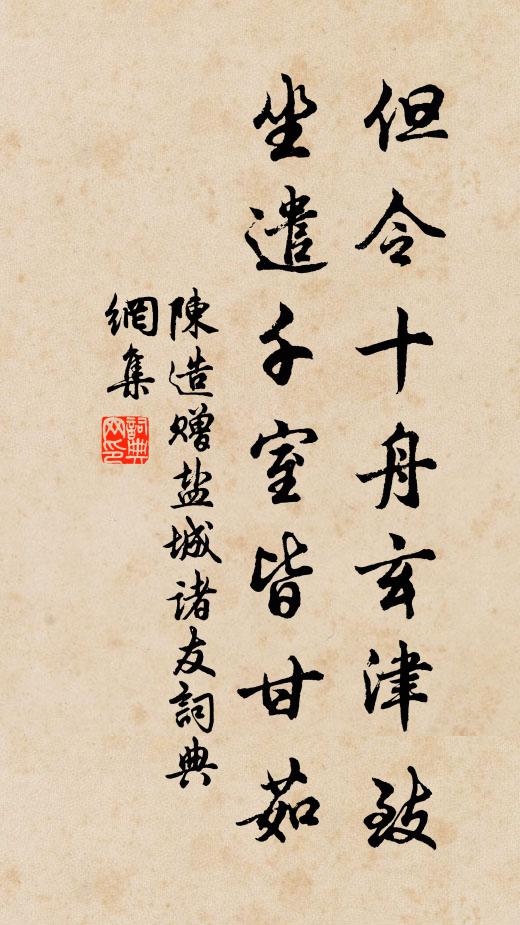 但令十舟玄津致
坐遣千室皆甘茹
陳造赠盐城诸友詞典
網集
詞典
网印